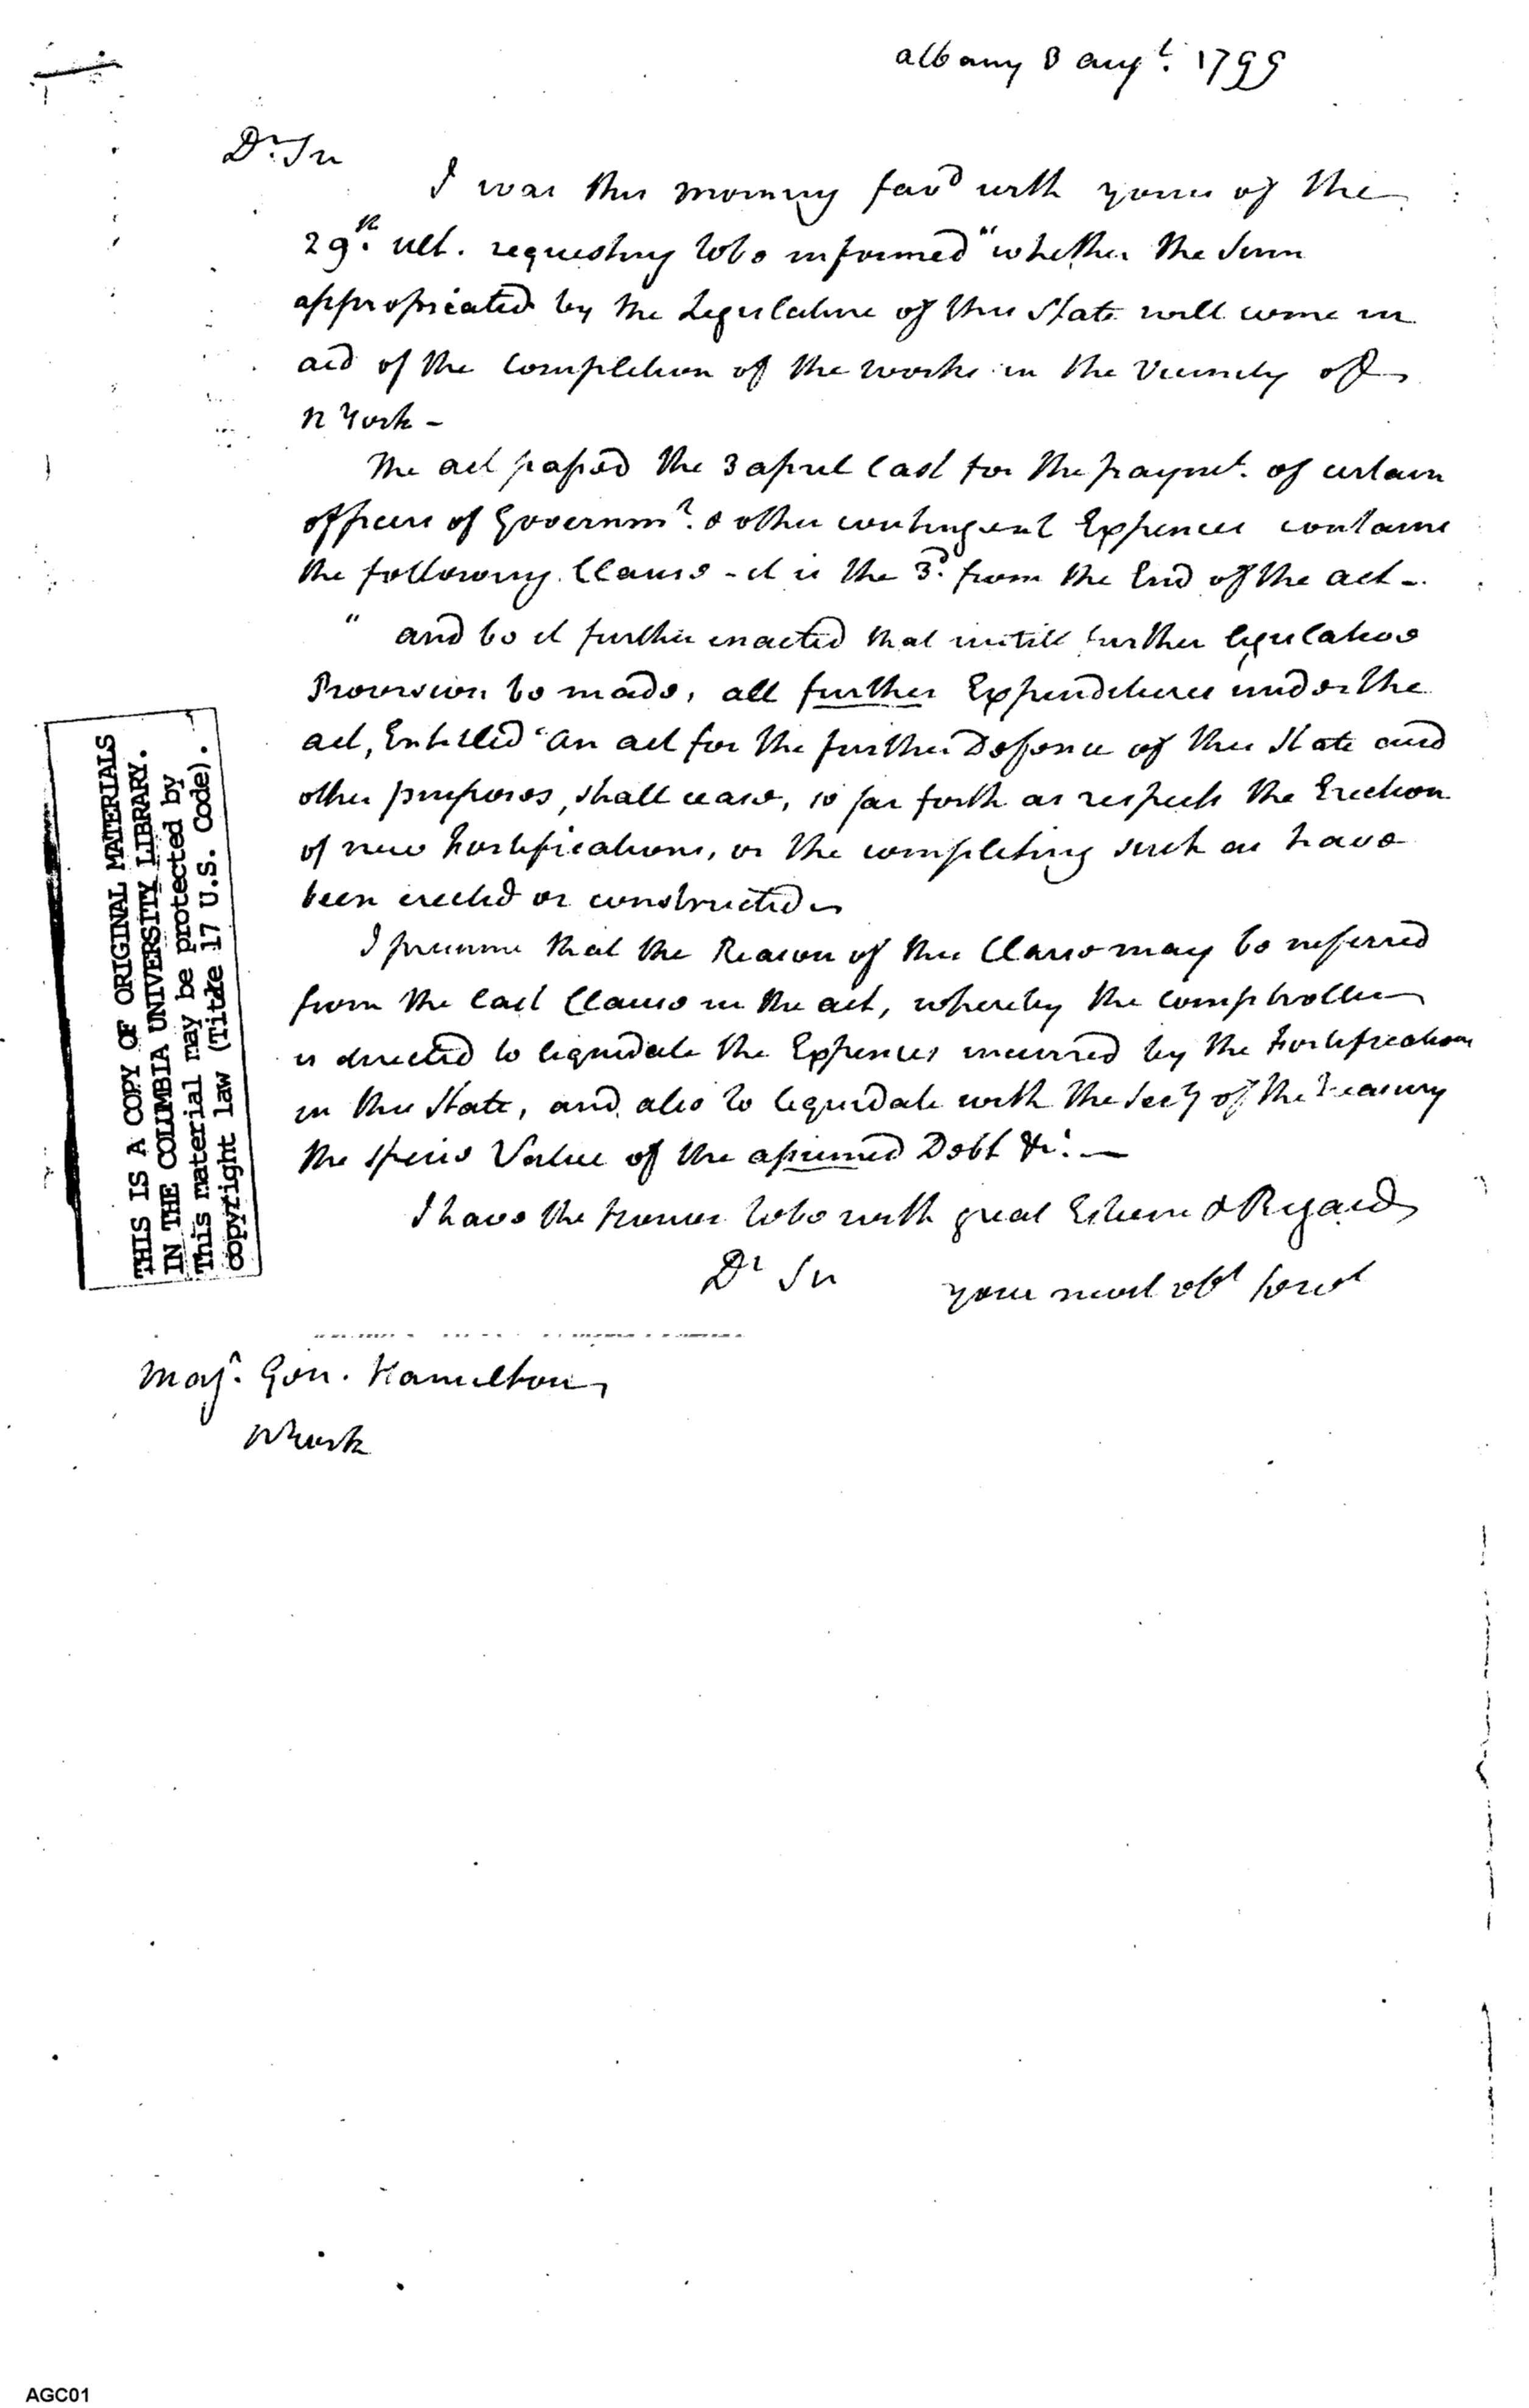 albany 8 augt. 1799
Dr. Sir
I was this morning favd with yours of the
29th. ult. requesting to be informed "whether the sum
appropriated by the Legislature of this State will come in
aid of the Completion of the works in the Vicinity of
N York -
The act passed the 3 april last for the paymt. of certain
officers of Governmt. & other contingent Expences contains
the following Clause - it is the 3d. from the End of the act -
" and be it further enacted that untill further legislative
Provision be made, all further Expenditures under the
act, Entitled 'an act for the further Defence of this State and
other purposes, shall cease, so far forth as respects the Erection
of new Fortifications, or the completing such as have
been erected or constructed
I presume that the Reason of this Clause may be inferred
from the last Clause in the act, whereby the comptroller
is directed to liquidate the Expences incurred by the Fortifications
in this State, and also to liquidate with the Secy of the Treasury
the specie Value of the assumed Debt &c. —
I have the honor to be with great Esteem & Regard
Dr Sir your most obt servt
Majr. Gen. Hamilton
NYork
THIS IS A COPY OF ORIGINAL MATERIALS
IN THE COLUMBIA UNIVERSITY LIBRARY.
This material may be protected by
copyright law (Title 17 U.S. Code).
AGC01